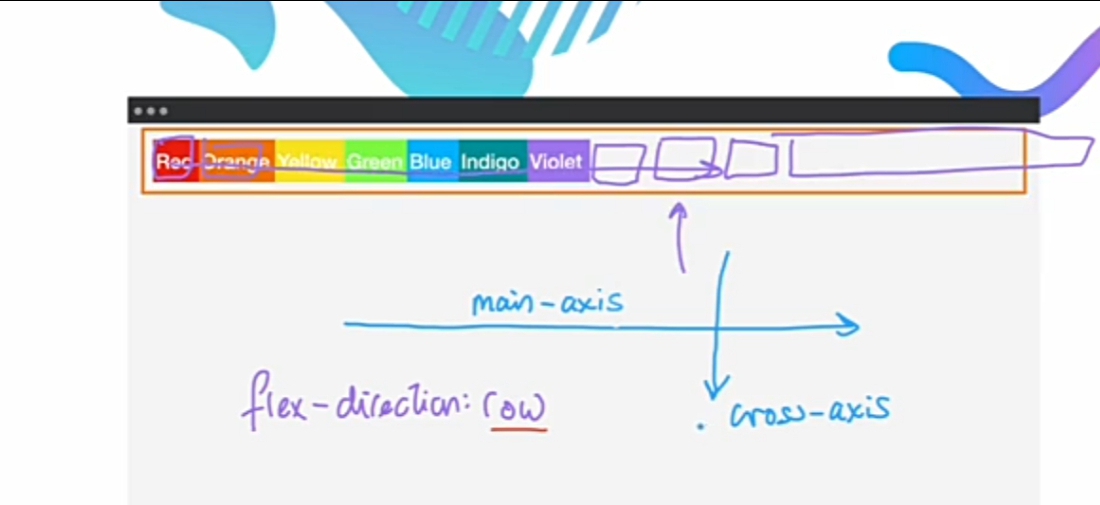 Red Orange Yellow Green Blue Indigo Violet
main-axis
flex-direction: row
cross-axis